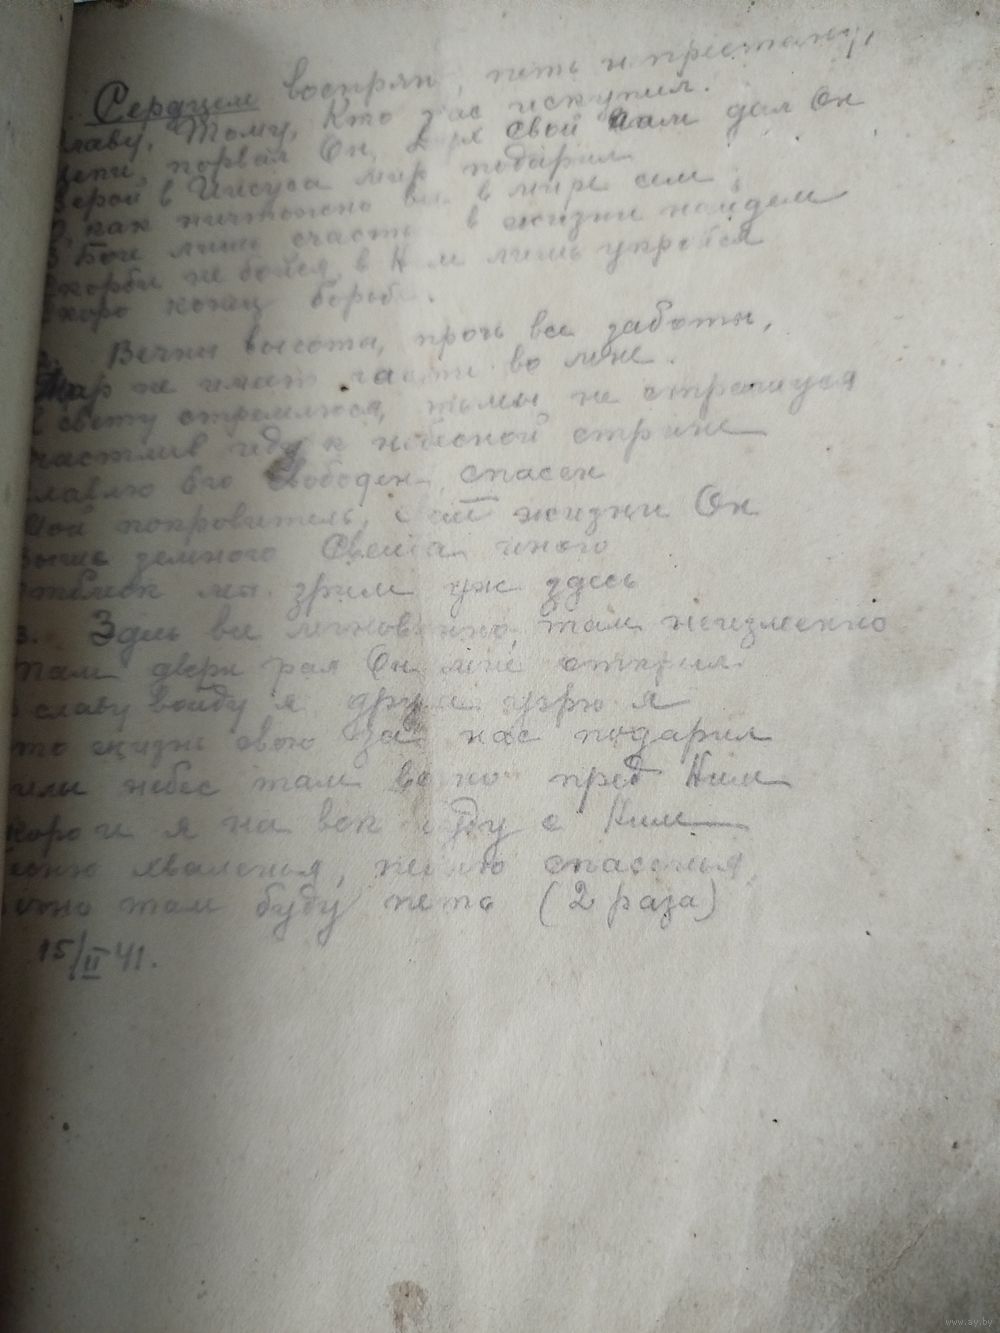 Сердцем воспрян, петь н престану,
славу, Тому, Кто нас искупил.
цепи, порвал Он, Дух свой нам дал Он
верой в Иисуса мир подарил
О, как ничтожно все в мире сем
В Боге лишь счастье в жизни найдем
скорби не бойся, в Нем лишь укройся
скоро конец борьбе.
2. Вечн высоты, прочь все заботы,
Мир не имеет части во мне.
К свету стремлюся, тьмы не страшуся
счастлив иду к небесной стране
славлю Его Свободен, спасен
Мой покровитель, жизни Он
выше земного Света иного
отблеск мы зрим уж здесь
3. Здесь все мгновенно, там неизменно
Там двери рая Он мне открыл
В славу войду я друга узрю я
Кто жизнь свою за нас подарил
силы небес там вечно пред Ним
скоро и я на век буду с Ним
песню хваленья, песню спасенья,
вечно там буду петь (2 раза)
15/II 41.
www.ay.by